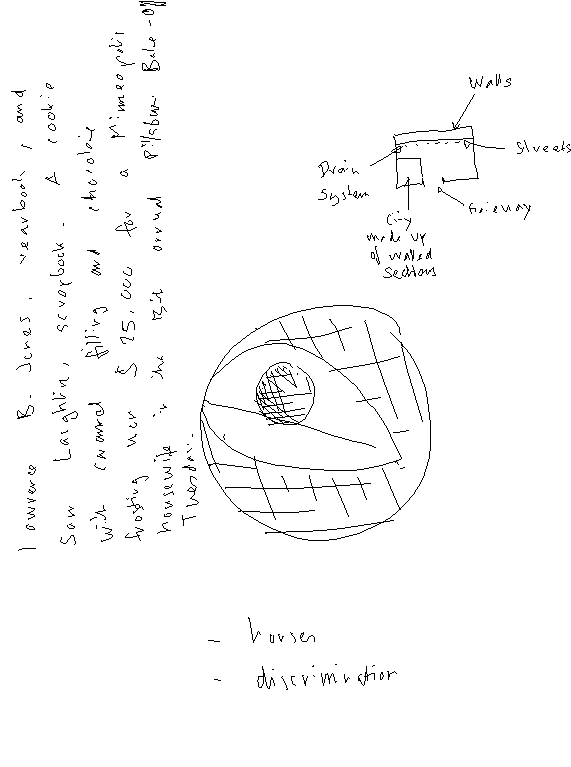 Lawrence B. Jones, yearbook, and
Sam Laughlin, scrapbook. A cookie
with caramel filling and chocolate
frosting won $ 25,000 for a Minneapolis
housewife in the annual Pillsbury Bake-off
Tuesday.
Walls
Streets
Drain
System
Gateway
City
made up
of walled
sections
- houses
- discrimination